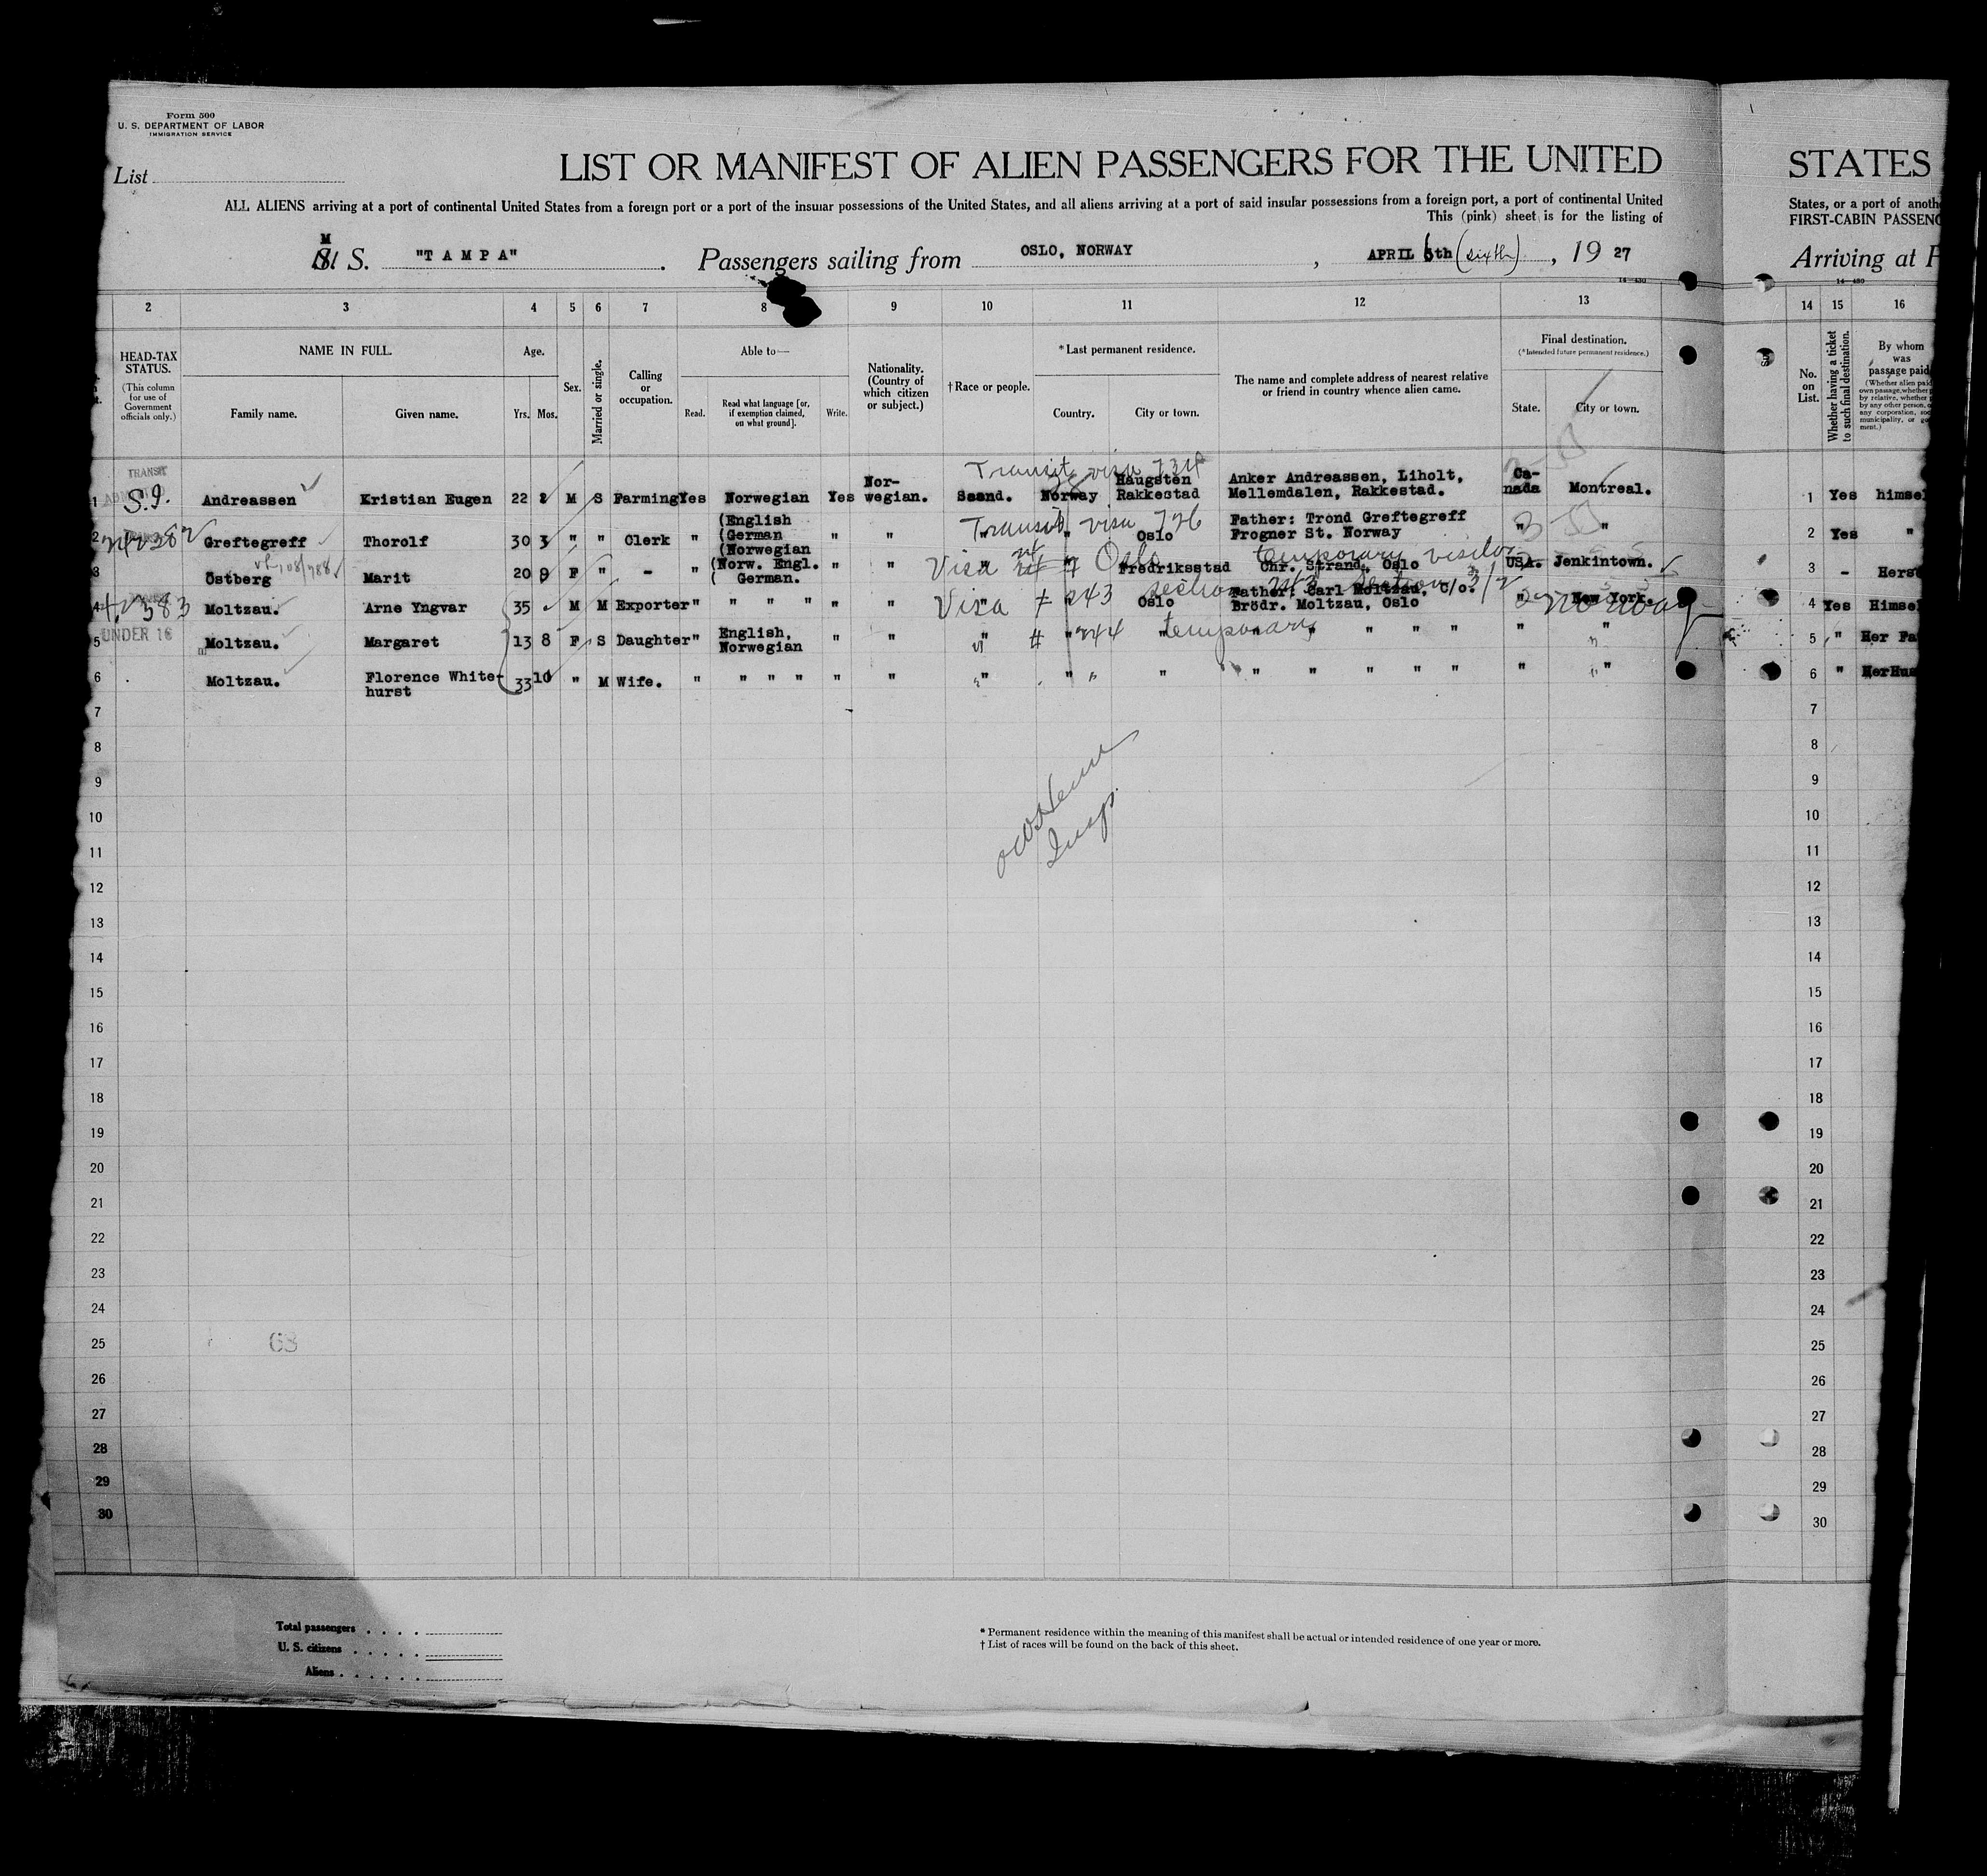 Form 500
U. S. DEPARTMENT OF LABOR
IMMIGRATION SERVICE
List
LIST OR MANIFEST OF ALIEN PASSENGERS FOR THE UNITED
STATES
ALL ALIENS arriving at a port of continental United States from a foreign port or a port of the insular possessions of the United States, and all aliens arriving at a port of said insular possessions from a foreign port, a port of continental United
States, or a port of anoth
This (pink) sheet is for the listing of
FIRST-CABIN PASSENG
M
S. "TAMPA". Passengers sailing from OSLO, NORWAY, APRIL 6th (sixth), 19 27
Arriving at P
14—430
14—430
2 3 4 5 6 7 8 9 10 11 12 13
14 15 16
HEAD-TAX STATUS.
(This column for use of Government officials only.)
NAME IN FULL.
Family name.
Given name.
Age.
Yrs. Mos.
Sex.
Married or single.
Calling or occupation.
Able to—
Read.
Read what language [or, if exemption claimed, on what ground].
Write.
Nationality. (Country of which citizen or subject.)
†Race or people.
*Last permanent residence.
Country.
City or town.
The name and complete address of nearest relative or friend in country whence alien came.
Final destination.
(*Intended future permanent residence.)
State.
City or town.
No. on List.
Whether having a ticket to such final destination.
By whom was passage paid
TRANSIT
Transit visa 734
1 S.I. Andreassen Kristian Eugen 22 M S Farming Yes Norwegian Yes Nor- wegian. Scand. Norway Haugsten Rakkestad Anker Andreassen, Liholt, Mellemdalen, Rakkestad. Ca- nada Montreal.
1 Yes himse
Transit visa 726
2 Greftegreff Thorolf 30 3 " " Clerk " (English (German (Norwegian " " " " Oslo Father: Trond Greftegreff Frogner St. Norway " "
2 Yes "
Visa 7 Oslo temporary
3 Östberg Marit 20 9 F " - " (Norw. Engl. ( German. " " " " Fredriksstad Chr. Strand, Oslo USA. Jenkintown.
3 - Hers
Visa # 243 section 3/2
4 Moltzau. Arne Yngvar 35 M M Exporter " " " " " " Oslo Father: Carl Moltzau, C/o. Brödr. Moltzau, Oslo " New York. Norway
4 Yes Himse
UNDER 16
# 244 temporary
5 Moltzau. Margaret 13 8 F S Daughter " English, Norwegian " " " " " " " " " " " "
5 " Her Fa
6 Moltzau. Florence White- hurst 33 10 " M Wife. " " " " " " " " " " " " " " " "
6 " Her Hus
7 7
8 8
9 9
10 10
11 11
12 12
13 13
14 14
15 15
16 16
17 17
18 18
19 19
20 20
21 21
22 22
23 23
24 24
25 63 25
26 26
27 27
28 28
29 29
30 30
Insp.
Total passengers
U. S. citizens
Aliens
* Permanent residence within the meaning of this manifest shall be actual or intended residence of one year or more.
† List of races will be found on the back of this sheet.